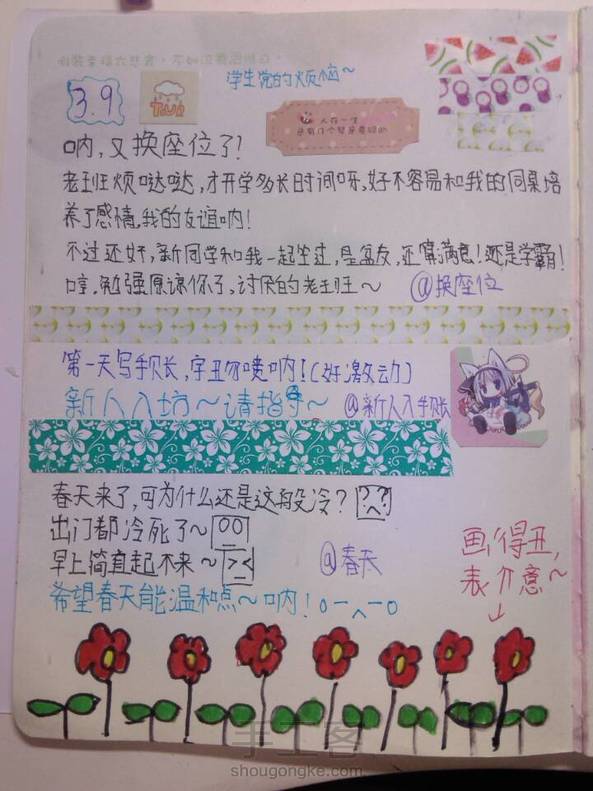 学生党的烦恼～
3.9
人在一生
呐,又换座位了!
老班烦哒哒,才开学多长时间呀,好不容易和我的同桌培
养了感情,我的友谊呐!
不过还好,新同学和我一起坐过,是盆友,还算满意!还是学霸!
哼,勉强原谅你了,讨厌的老班～ @换座位
第一天写手账,字丑勿喷呐!(好激动)
新人入坊～请指导～ @新人入手账
春天来了,可为什么还是这般冷?
出门都冷死了～
早上简直起不来～ @春天
希望春天能温和点～呐!
画得丑,
表介意～
手工客
shougongke.com